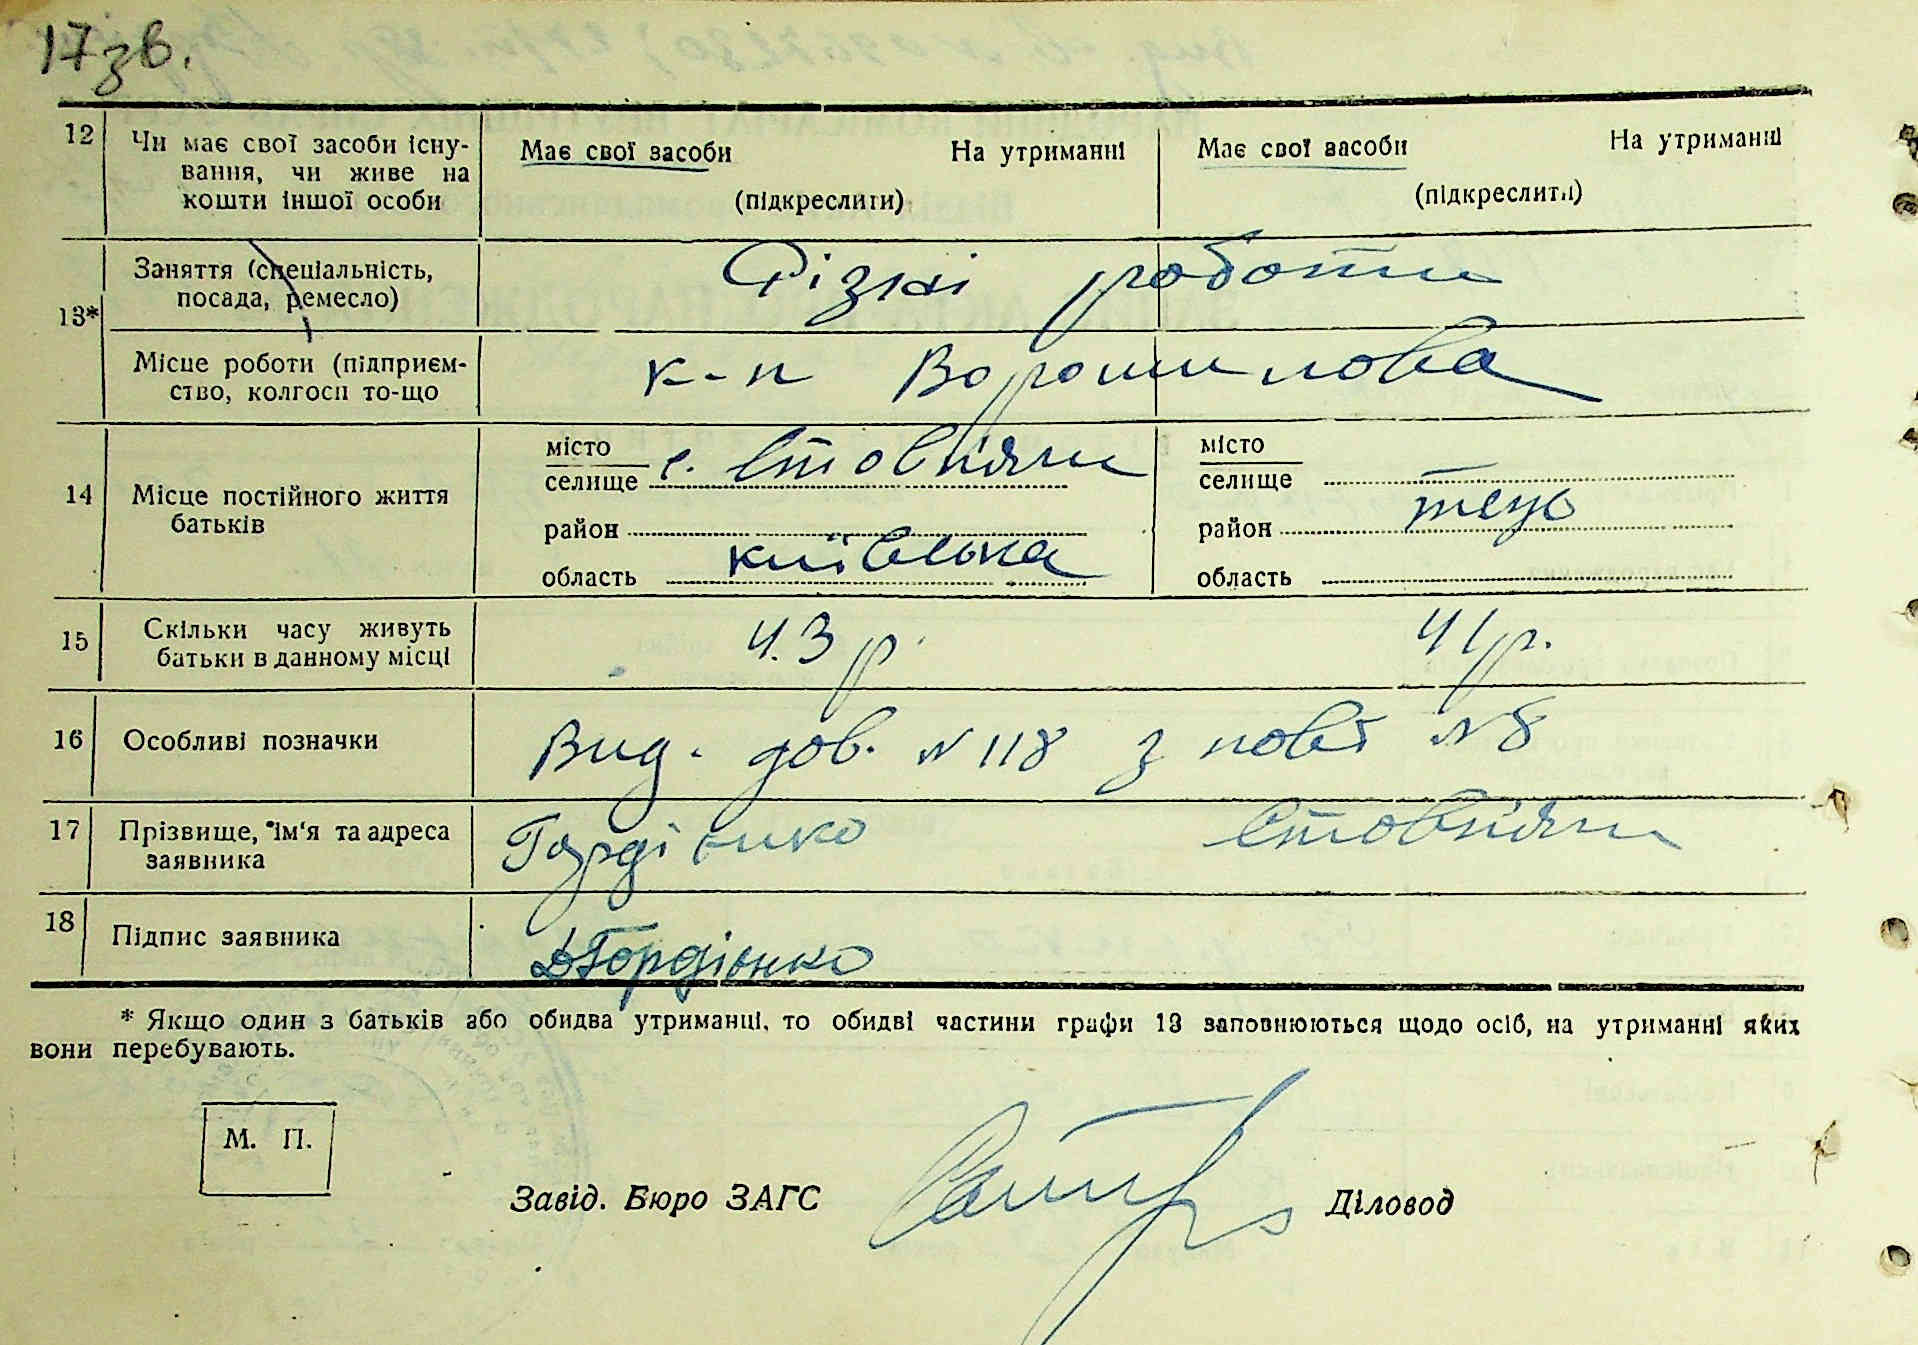 17зв.
12 Чи має свої засоби існу-
вання, чи живе на
кошти іншої особи
Має свої засоби На утриманні
(підкреслити)
Має свої засоби На утриманні
(підкреслити)
13* Заняття (спеціальність,
посада, ремесло)
Різні роботи
Місце роботи (підприєм-
ство, колгосп то-що
к-п Ворошилова
14 Місце постійного життя
батьків
місто
селище с. Стовпяги
район
область київська
місто
селище
район теж
область
15 Скільки часу живуть
батьки в данному місці
43 р. 41 р.
16 Особливі позначки
Вид. дов. N 118 з нові N 8
17 Прізвище, ім'я та адреса
заявника
Гордієнко Стовпяги
18 Підпис заявника
Гордієнко
* Якщо один з батьків або обидва утриманці, то обидві частини графи 13 заповнюються щодо осіб, на утриманні яких
вони перебувають.
М. П.
Завід. Бюро ЗАГС Діловод